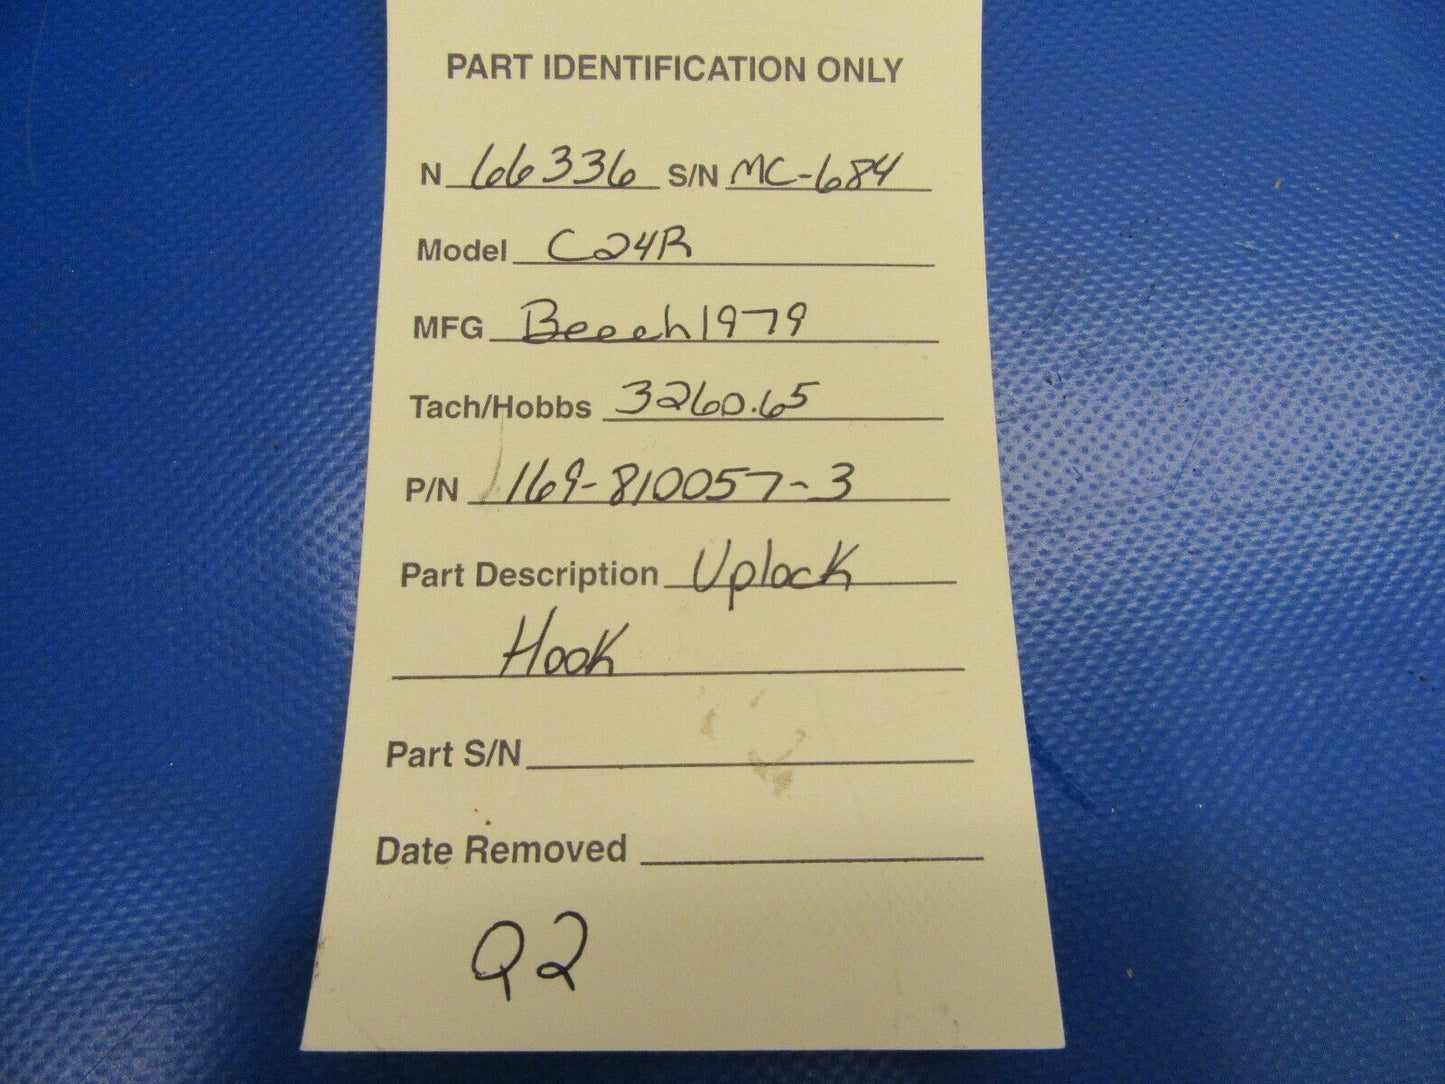 PART IDENTIFICATION ONLY
N 66336 S/N MC-684
Model C24R
MFG Beech 1979
Tach/Hobbs 3260.65
P/N 169-810057-3
Part Description Uplock
Hook
Part S/N
Date Removed
Q2